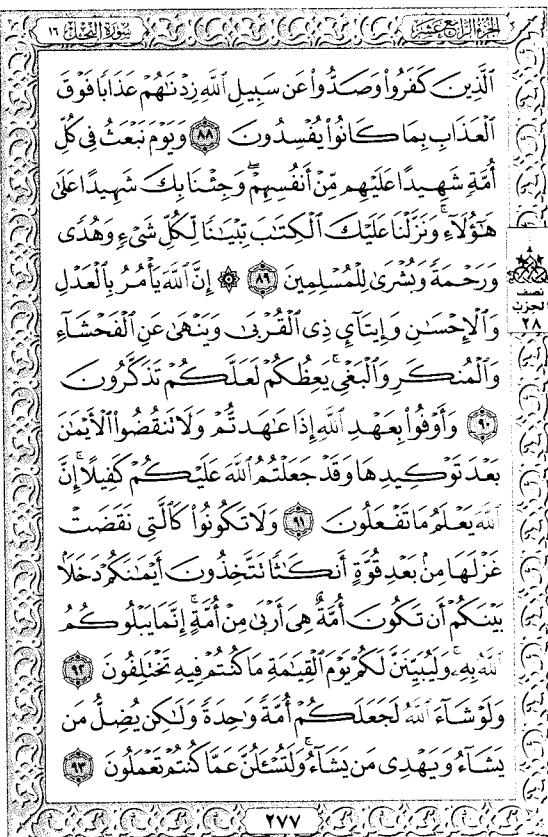 الجزء الرابع عشر
سورة النحل ١٦
ٱلَّذِينَ كَفَرُوا۟ وَصَدُّوا۟ عَن سَبِيلِ ٱللَّهِ زِدْنَٰهُمْ عَذَابًا فَوْقَ
ٱلْعَذَابِ بِمَا كَانُوا۟ يُفْسِدُونَ ٨٨ وَيَوْمَ نَبْعَثُ فِى كُلِّ
أُمَّةٍ شَهِيدًا عَلَيْهِم مِّنْ أَنفُسِهِمْ ۖ وَجِئْنَا بِكَ شَهِيدًا عَلَىٰ
هَٰٓؤُلَآءِ ۚ وَنَزَّلْنَا عَلَيْكَ ٱلْكِتَٰبَ تِبْيَٰنًا لِّكُلِّ شَىْءٍ وَهُدًى
وَرَحْمَةً وَبُشْرَىٰ لِلْمُسْلِمِينَ ٨٩ ۞ إِنَّ ٱللَّهَ يَأْمُرُ بِٱلْعَدْلِ
وَٱلْإِحْسَٰنِ وَإِيتَآئِ ذِى ٱلْقُرْبَىٰ وَيَنْهَىٰ عَنِ ٱلْفَحْشَآءِ
وَٱلْمُنكَرِ وَٱلْبَغْىِ ۚ يَعِظُكُمْ لَعَلَّكُمْ تَذَكَّرُونَ
٩٠ وَأَوْفُوا۟ بِعَهْدِ ٱللَّهِ إِذَا عَٰهَدتُّمْ وَلَا تَنقُضُوا۟ ٱلْأَيْمَٰنَ
بَعْدَ تَوْكِيدِهَا وَقَدْ جَعَلْتُمُ ٱللَّهَ عَلَيْكُمْ كَفِيلًا ۚ إِنَّ
ٱللَّهَ يَعْلَمُ مَا تَفْعَلُونَ ٩١ وَلَا تَكُونُوا۟ كَٱلَّتِى نَقَضَتْ
غَزْلَهَا مِنۢ بَعْدِ قُوَّةٍ أَنكَٰثًا تَتَّخِذُونَ أَيْمَٰنَكُمْ دَخَلًۢا
بَيْنَكُمْ أَن تَكُونَ أُمَّةٌ هِىَ أَرْبَىٰ مِنْ أُمَّةٍ ۚ إِنَّمَا يَبْلُوكُمُ
ٱللَّهُ بِهِۦ ۚ وَلَيُبَيِّنَنَّ لَكُمْ يَوْمَ ٱلْقِيَٰمَةِ مَا كُنتُمْ فِيهِ تَخْتَلِفُونَ ٩٢
وَلَوْ شَآءَ ٱللَّهُ لَجَعَلَكُمْ أُمَّةً وَٰحِدَةً وَلَٰكِن يُضِلُّ مَن
يَشَآءُ وَيَهْدِى مَن يَشَآءُ ۚ وَلَتُسْـَٔلُنَّ عَمَّا كُنتُمْ تَعْمَلُونَ ٩٣
نصف
الحزب
٢٨
٢٧٧